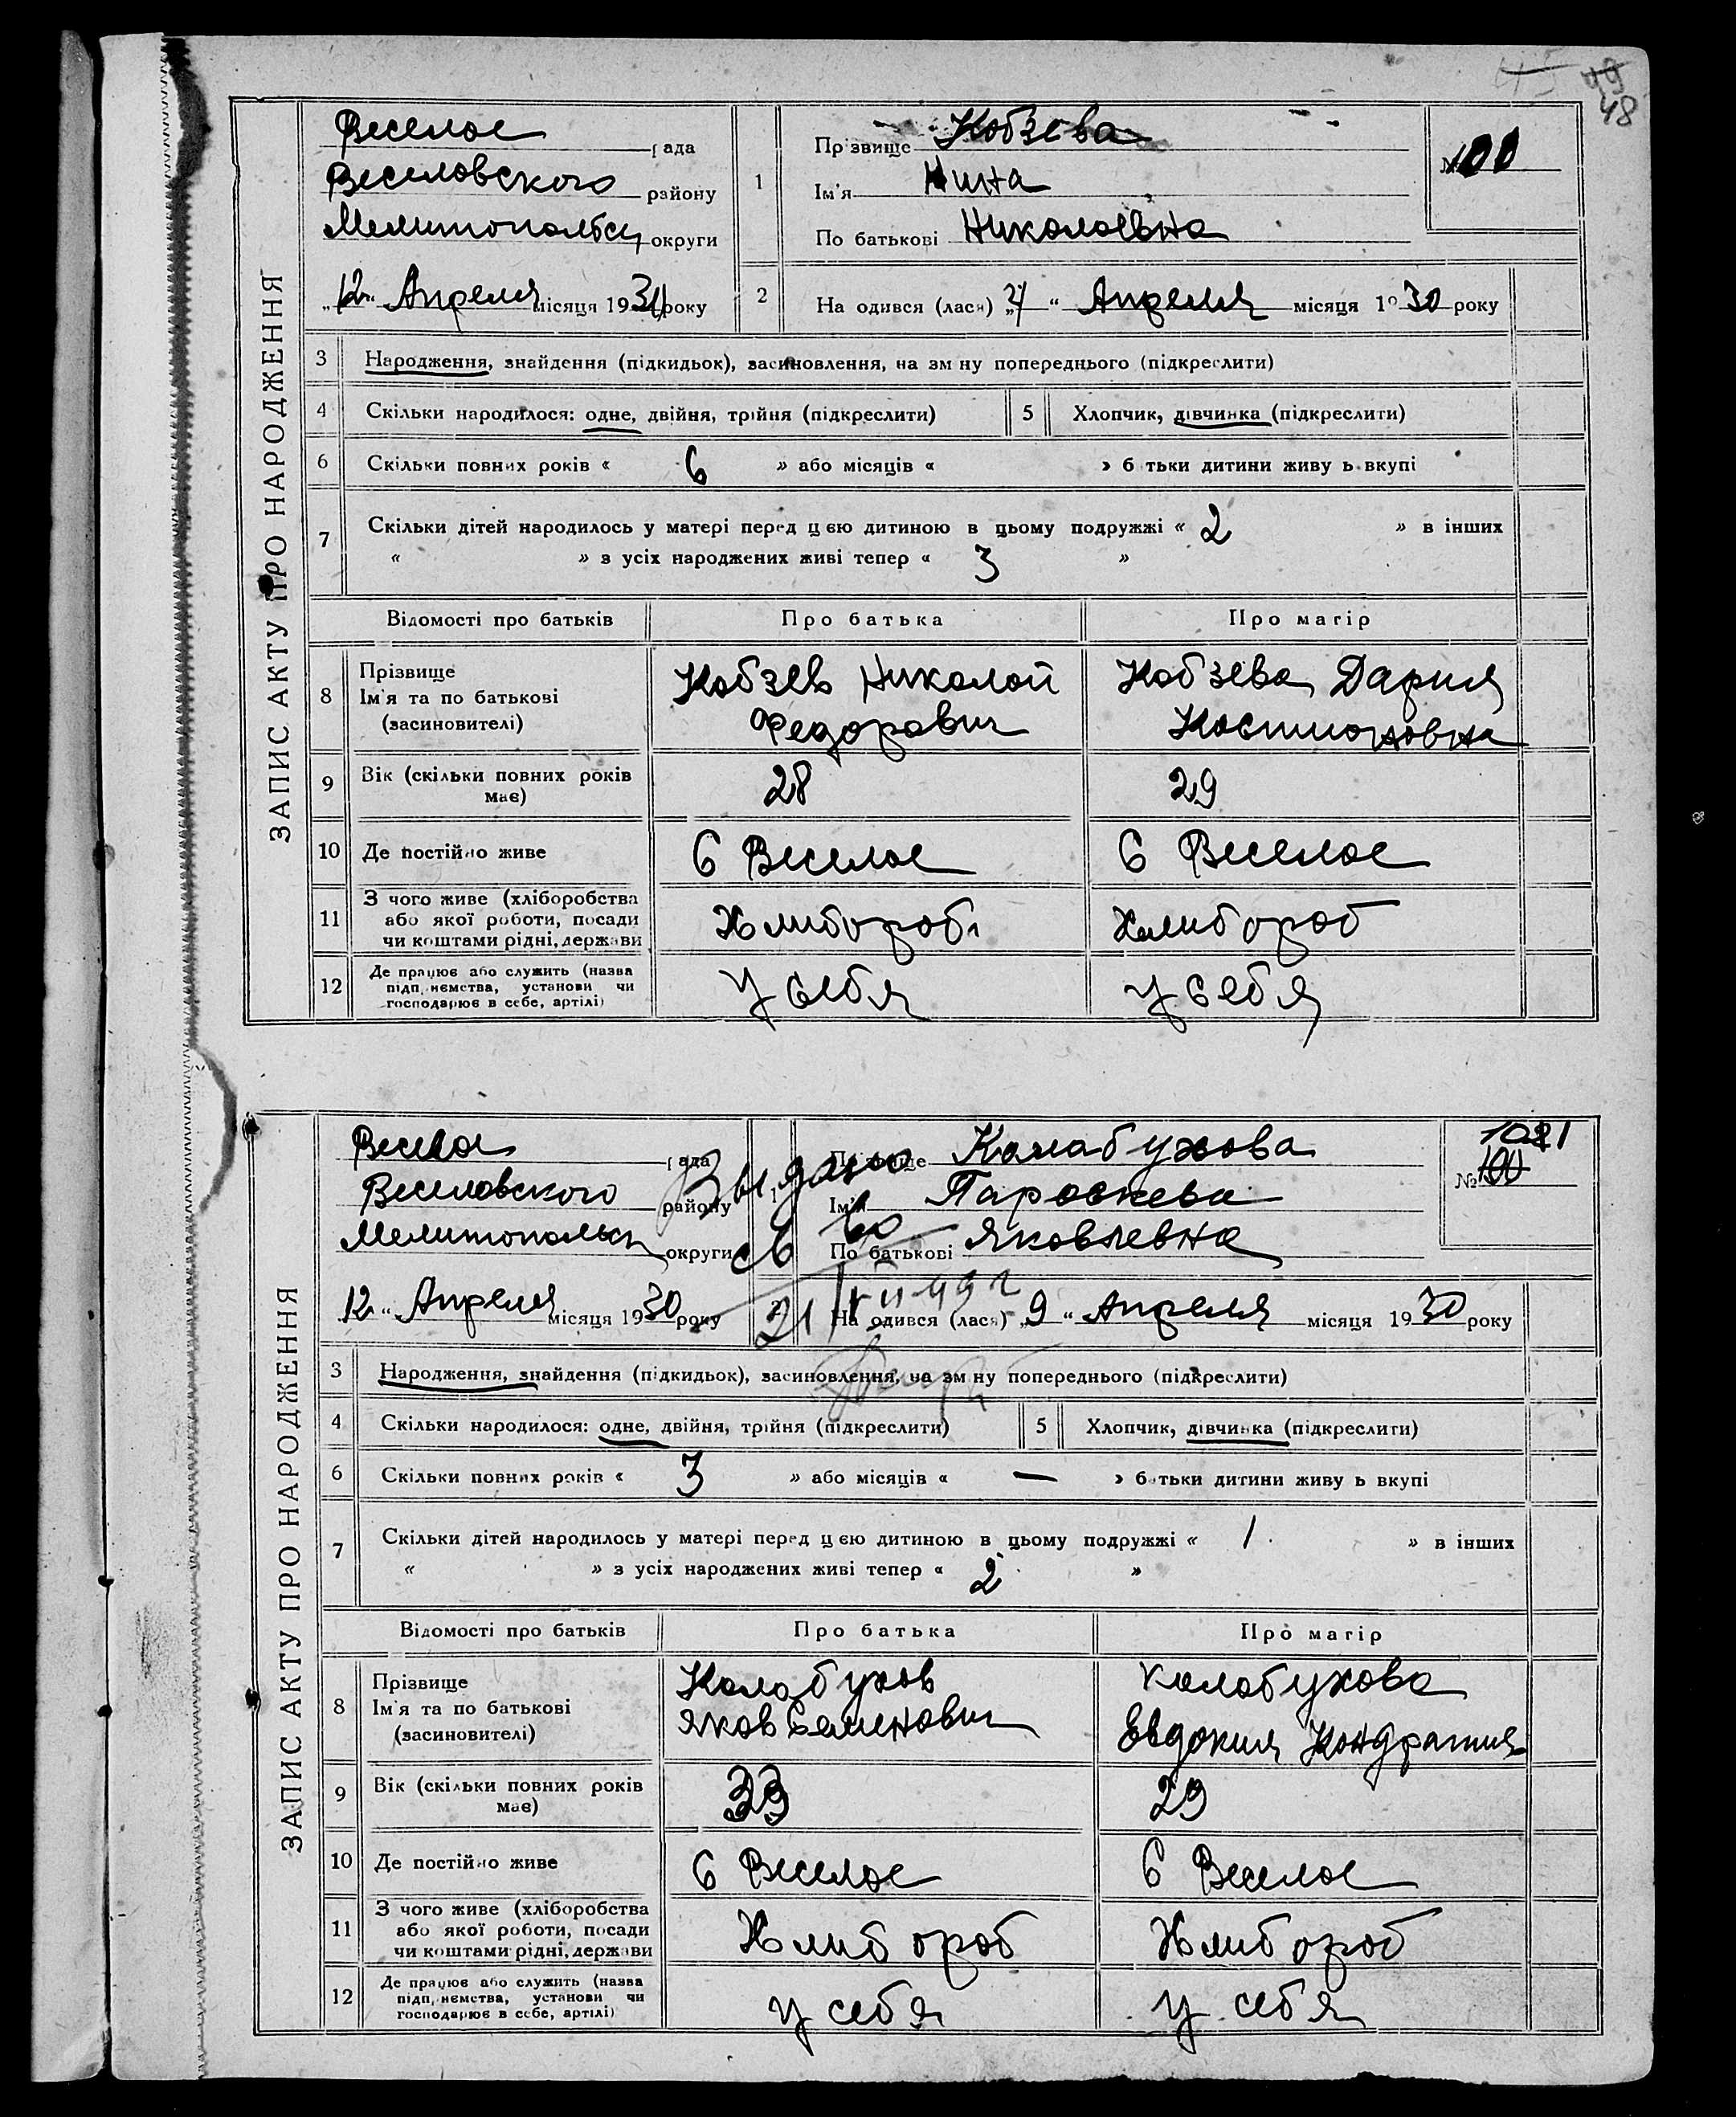 45 49
48
ЗАПИС АКТУ ПРО НАРОДЖЕННЯ
Веселое рада
Веселовского району
Мелитопольск округи
"12" Апреля місяця 19 року
1
Прізвище Кобзева
Ім'я Нина
По батькові Николаевна
№ 100
2
На одився (лася) " " Апреля місяця 19 30 року
3 Народження, знайдення (підкидьок), засиновлення, на зміну попереднього (підкреслити)
4 Скільки народилося: одне, двійня, трійня (підкреслити) 5 Хлопчик, дівчинка (підкреслити)
6 Скільки повних років « 6 » або місяців « » батьки дитини живуть вкупі
7 Скільки дітей народилось у матері перед цією дитиною в цьому подружжі « 2 » в інших
« » з усіх народжених живі тепер « 3 »
Відомості про батьків Про батька Про матір
8 Прізвище Ім'я та по батькові (засиновителі)
Кобзев Николай
Федорович
Кобзева Дария
9 Вік (скільки повних років має) 28 29
10 Де постійно живе С Веселое С Веселое
11 З чого живе (хліборобства або якої роботи, посади чи коштами рідні, держави Хлибороб Хлибороб
12 Де працює або служить (назва підприємства, установи чи господарює в себе, артілі) У себя У себя
ЗАПИС АКТУ ПРО НАРОДЖЕННЯ
Веселое рада
Веселовского району
Мелитопольск округи
"12" Апреля місяця 1930 року
Выдано
св во
21
1
Прізвище Калабухова
Ім'я Параскева
По батькові Яковлевна
101
№ 100
На одився (лася) "9" Апреля місяця 19 30 року
3 Народження, знайдення (підкидьок), засиновлення, на зміну попереднього (підкреслити)
4 Скільки народилося: одне, двійня, трійня (підкреслити) 5 Хлопчик, дівчинка (підкреслити)
6 Скільки повних років « 3 » або місяців « — » батьки дитини живуть вкупі
7 Скільки дітей народилось у матері перед цією дитиною в цьому подружжі « 1 » в інших
« » з усіх народжених живі тепер « 2 »
Відомості про батьків Про батька Про матір
8 Прізвище Ім'я та по батькові (засиновителі)
Калабухов
Яков Семенович
Калабухова
Евдокия
9 Вік (скільки повних років має) 33 29
10 Де постійно живе С Веселое С Веселое
11 З чого живе (хліборобства або якої роботи, посади чи коштами рідні, держави Хлибороб Хлибороб
12 Де працює або служить (назва підприємства, установи чи господарює в себе, артілі) У себя У себя